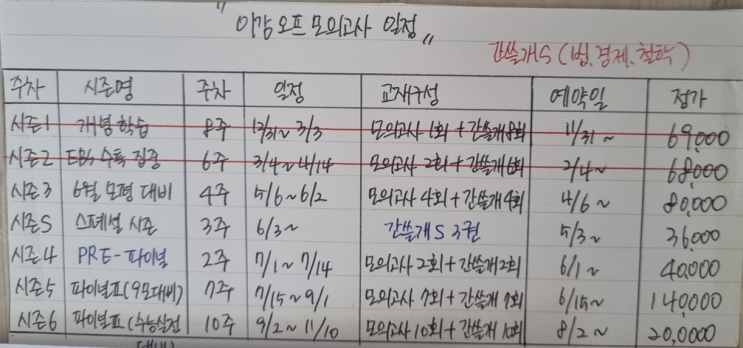 "이감 오프 모의고사 일정"
간쓸개S (법,경제,철학)
주차 시즌명 주차 일정 교재구성 예약일 정가
시즌1 개념 학습 8주 12/31~3/3 모의고사 1회+간쓸개 8회 11/31~ 69,000
시즌2 EBS 수특 집중 6주 3/4~4/14 모의고사 2회+간쓸개 6회 2/4~ 68,000
시즌3 6월 모평 대비 4주 5/6~6/2 모의고사 4회+간쓸개 4회 4/6~ 80,000
시즌S 스페셜 시즌 3주 6/3~ 간쓸개S 3권 5/3~ 36,000
시즌4 PRE-파이널 2주 7/1~7/14 모의고사 2회+간쓸개 2회 6/1~ 40,000
시즌5 파이널I(9모대비) 7주 7/15~9/1 모의고사 7회+간쓸개 7회 6/15~ 140,000
시즌6 파이널II(수능실전 10주 9/2~11/10 모의고사 10회+간쓸개 10회 8/2~ 20,0000
대비)